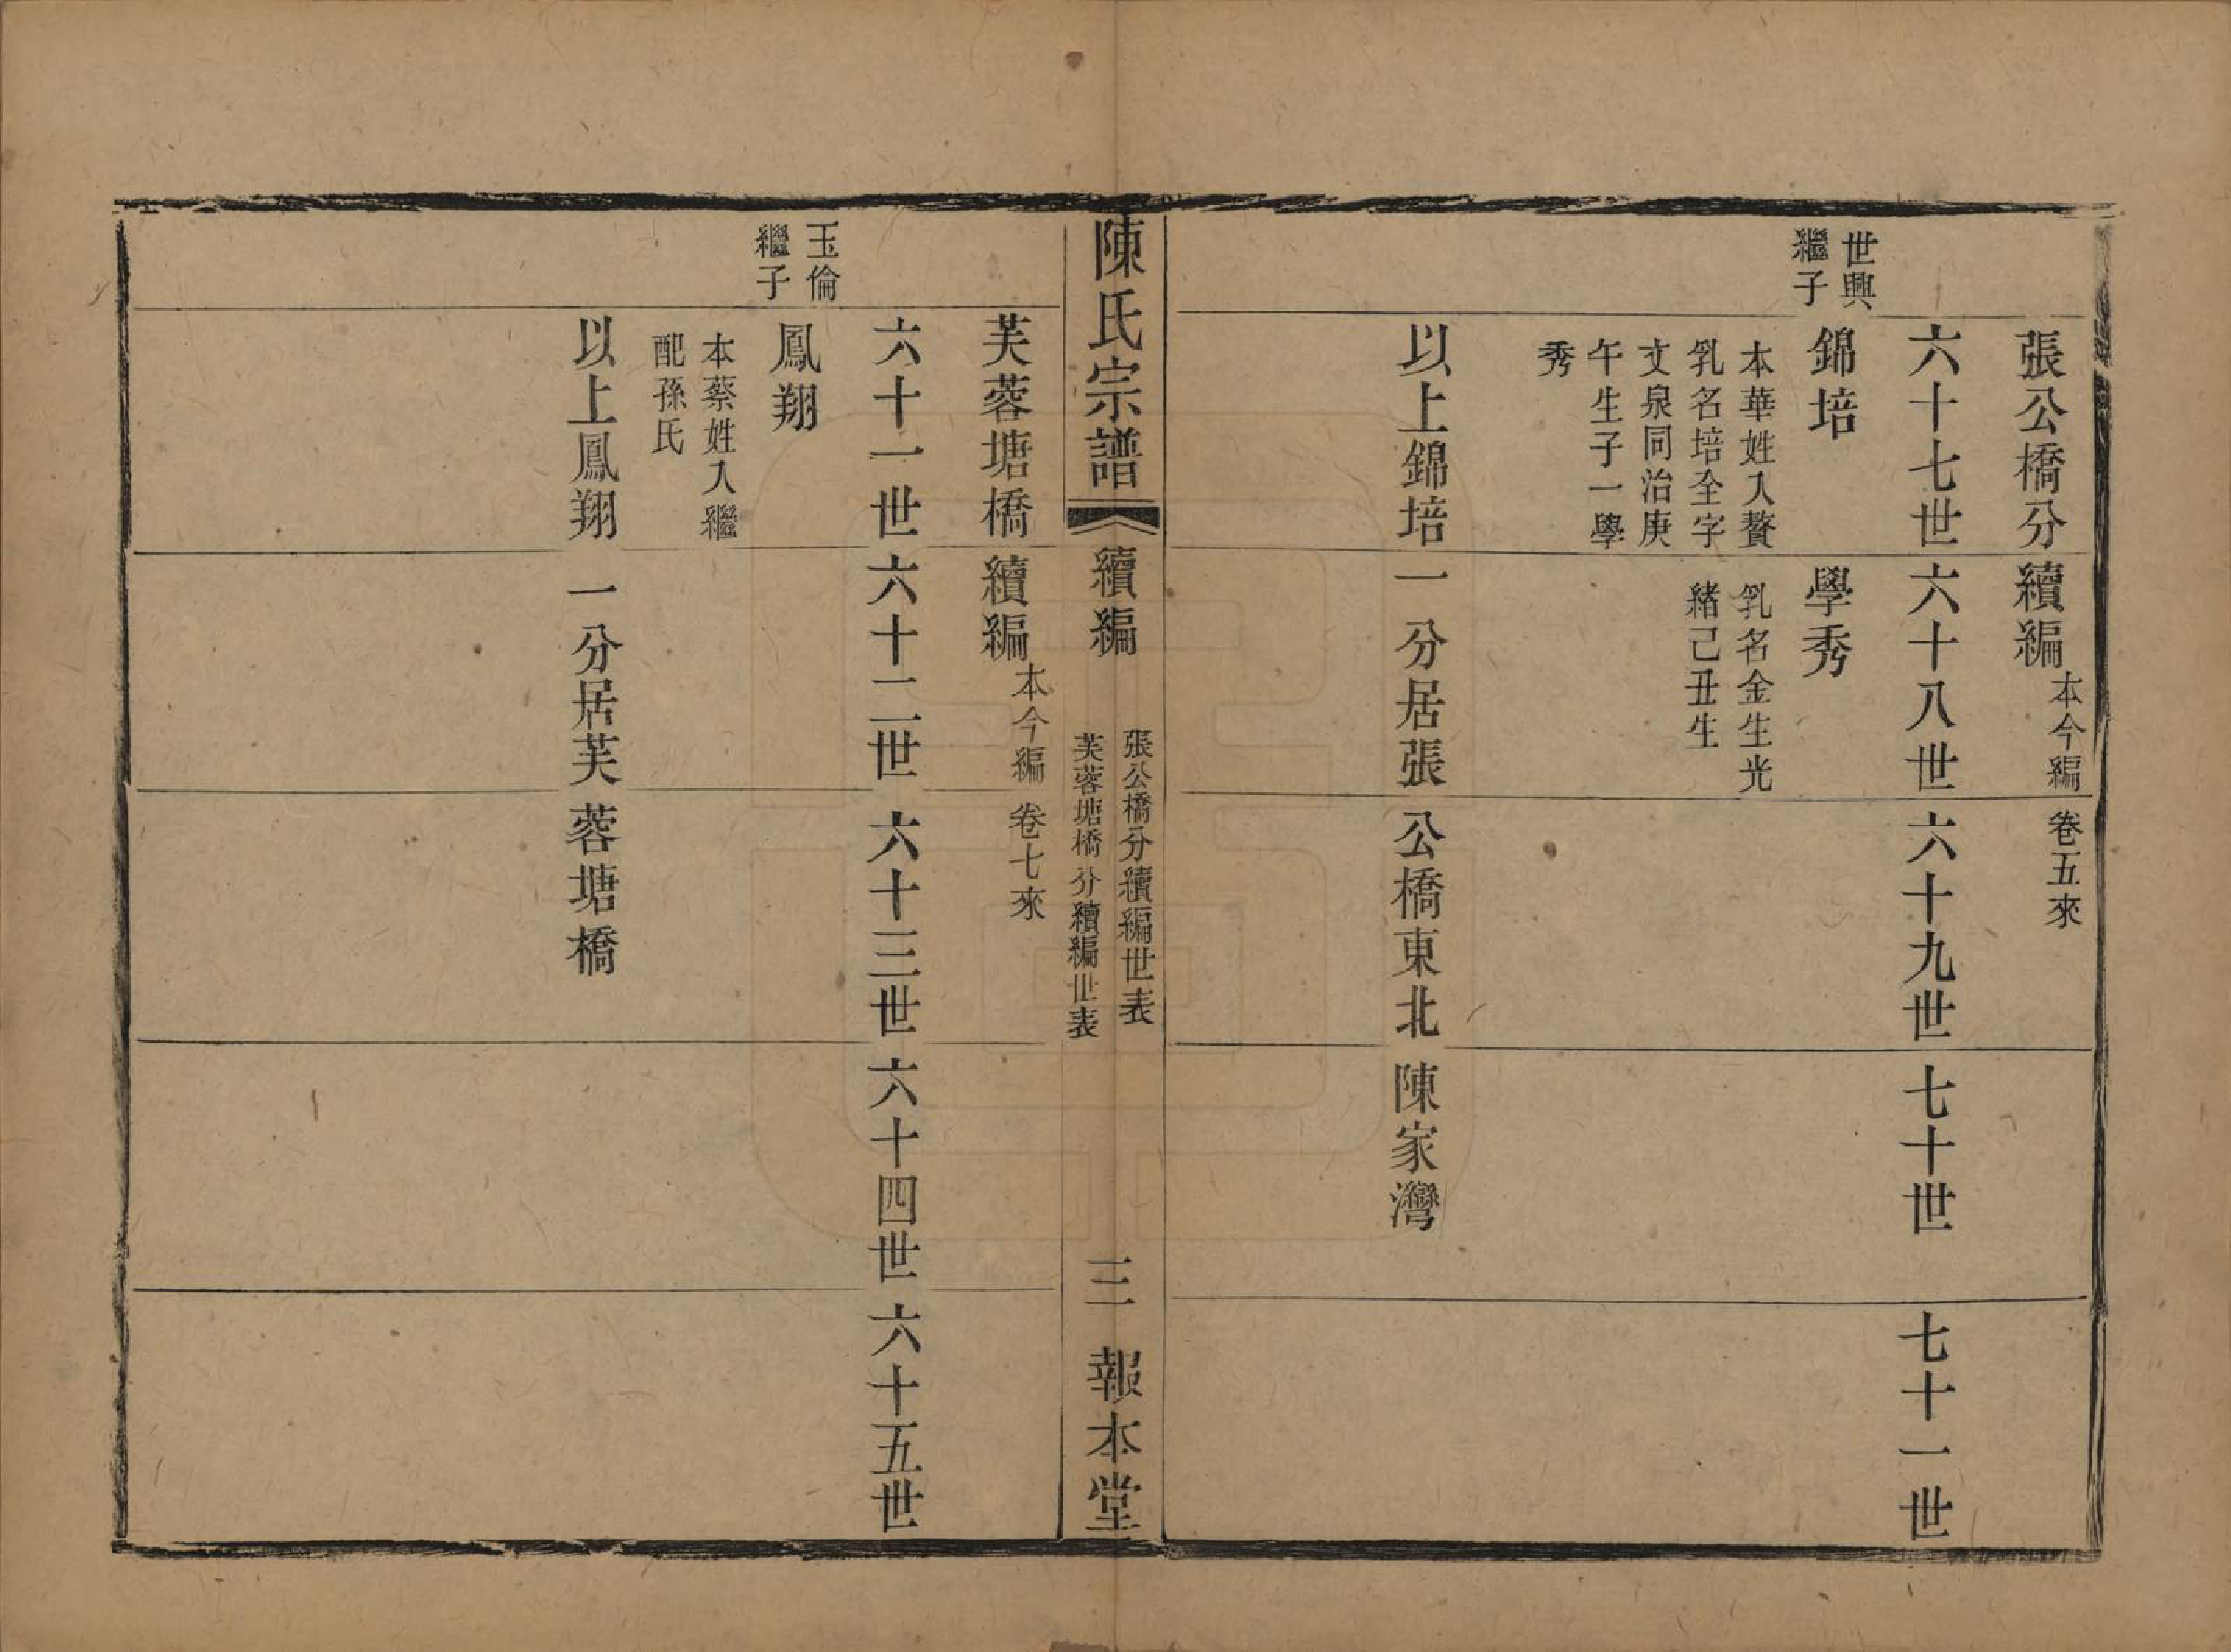 張公橋分續編本今編卷五來
六十七世六十八世六十九世七十世七十一世
世興
繼子
錦培
本華姓入贅
乳名培全字
文泉同治庚
午生子一學
秀
學秀
乳名金生光
緒己丑生
以上錦培一分居張公橋東北陳家灣
陳氏宗譜
續編
張公橋分續編世表
芙蓉塘橋分續編世表
三
報本堂
芙蓉塘橋續編本今編卷七來
六十一世六十二世六十三世六十四世六十五世
玉倫
繼子
鳳翔
本蔡姓入繼
配孫氏
以上鳳翔一分居芙蓉塘橋